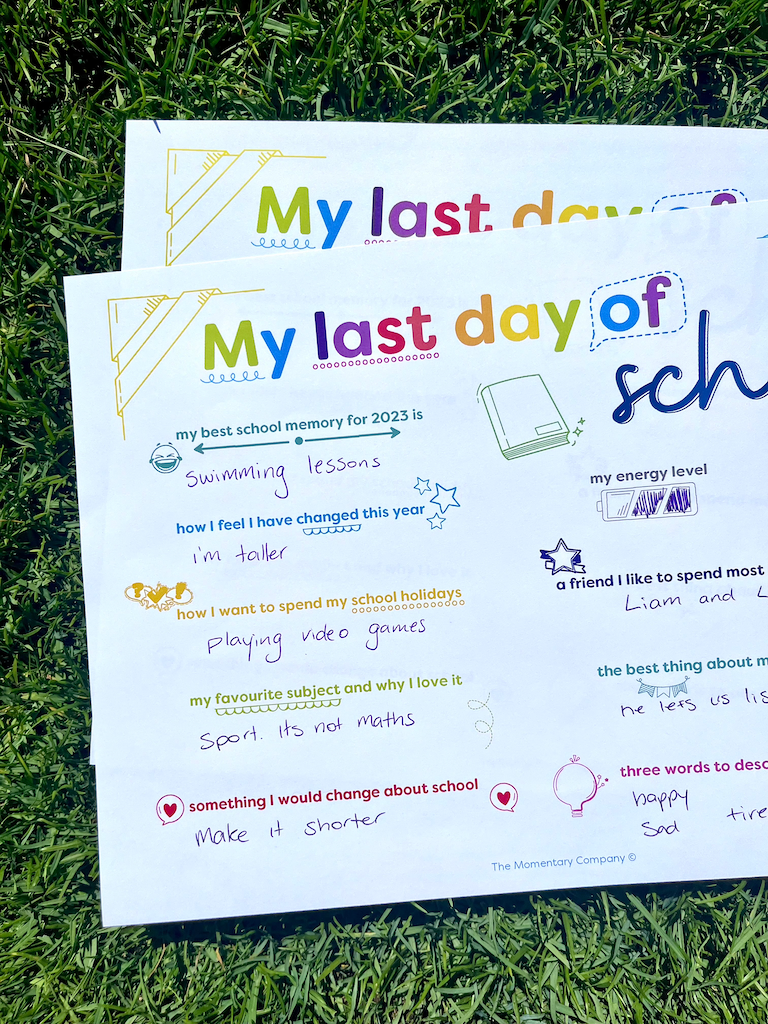 My last day of
My last day of
my best school memory for 2023 is
swimming lessons
how I feel I have changed this year
i'm taller
how I want to spend my school holidays
playing video games
my favourite subject and why I love it
Sport. its not maths
something I would change about school
make it shorter
my energy level
a friend I like to spend most
Liam and
the best thing about
he lets us
three words to
happy
sad
The Momentary Company ©